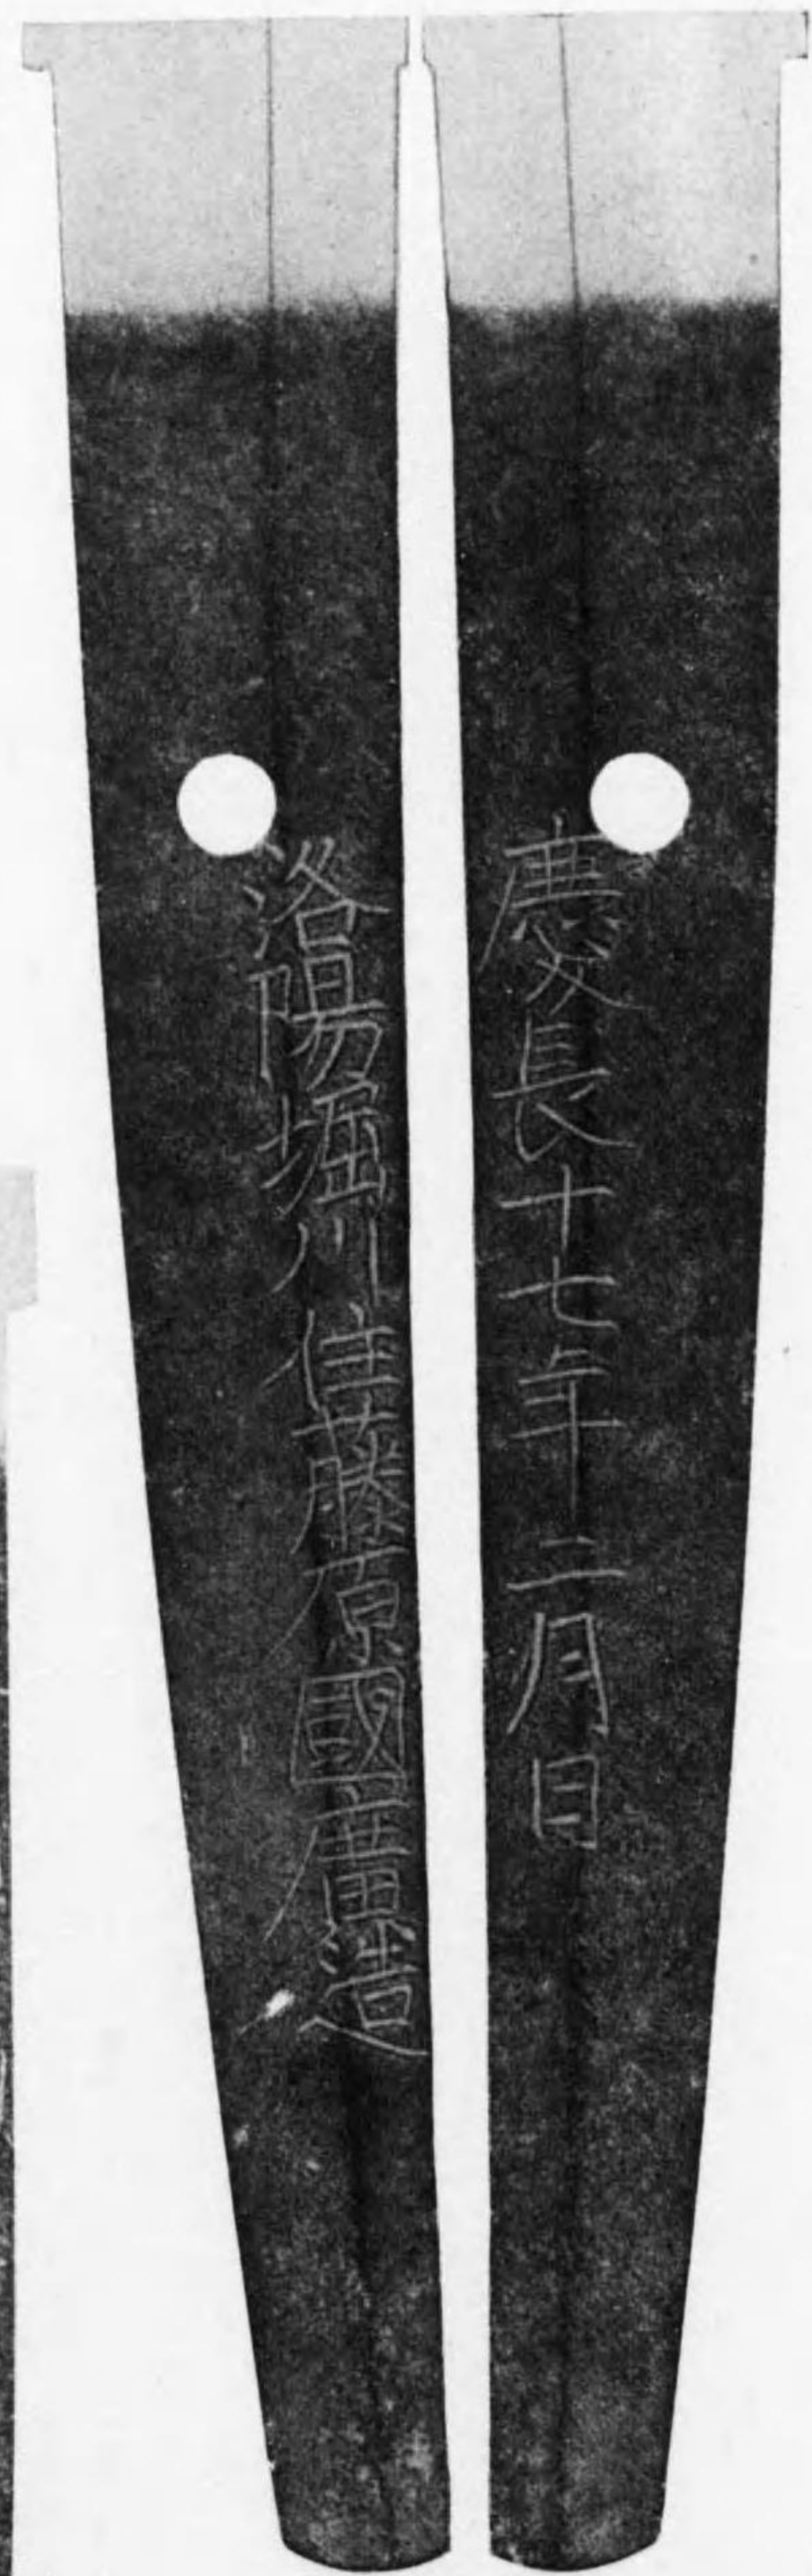 慶長十七年二月日
洛陽堀川住藤原國廣造